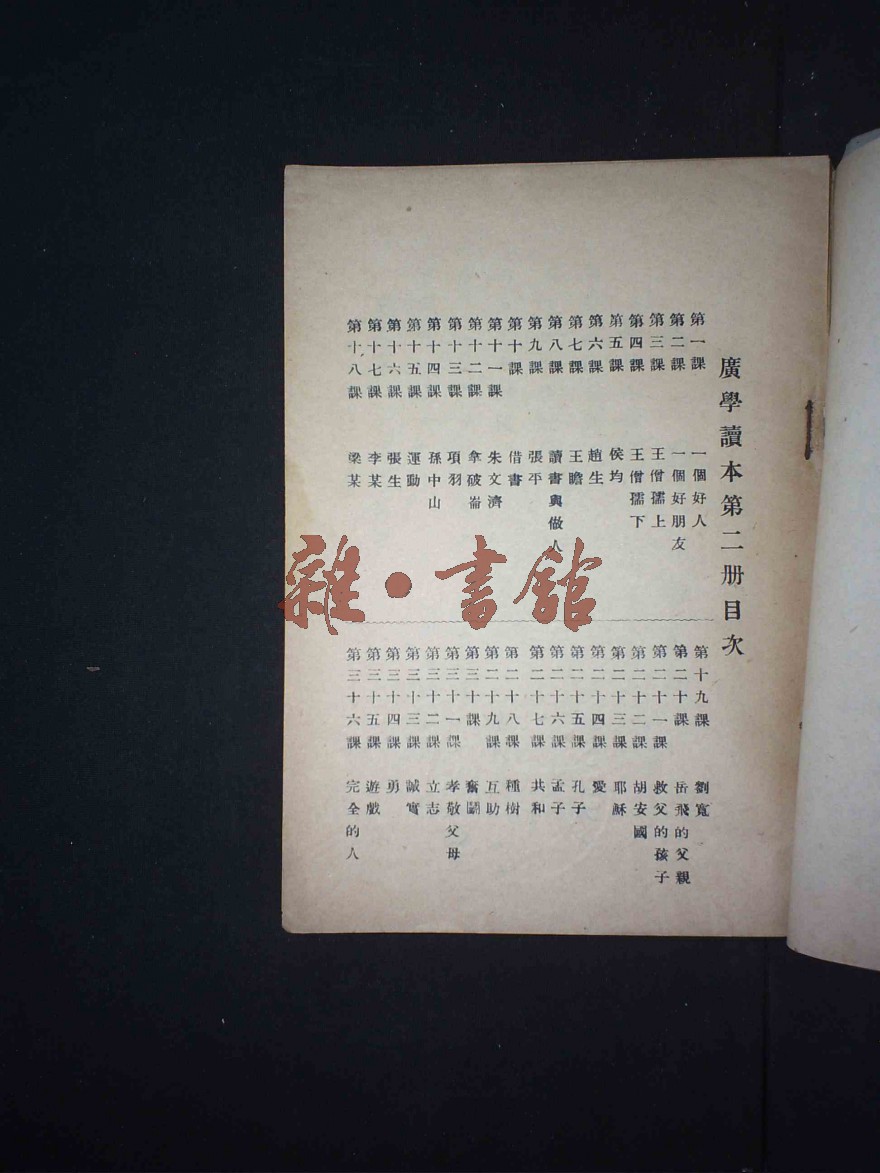 廣學讀本第二册目次
第一課 一個好人
第二課 一個好朋友
第三課 王僧孺上
第四課 王僧孺下
第五課 侯均
第六課 趙生
第七課 王瞻
第八課 讀書與做人
第九課 張平
第十課 借書
第十一課 朱文濟
第十二課 拿破崙
第十三課 項羽
第十四課 孫中山
第十五課 運動
第十六課 張生
第十七課 李某
第十八課 梁某
第十九課 劉寬
第二十課 岳飛的父親
第二十一課 救父的孩子
第二十二課 胡安國
第二十三課 耶穌
第二十四課 愛
第二十五課 孔子
第二十六課 孟子
第二十七課 共和
第二十八課 種樹
第二十九課 互助
第三十課 奮鬭
第三十一課 孝敬父母
第三十二課 立志
第三十三課 誠實
第三十四課 勇
第三十五課 遊戲
第三十六課 完全的人
雜·書館